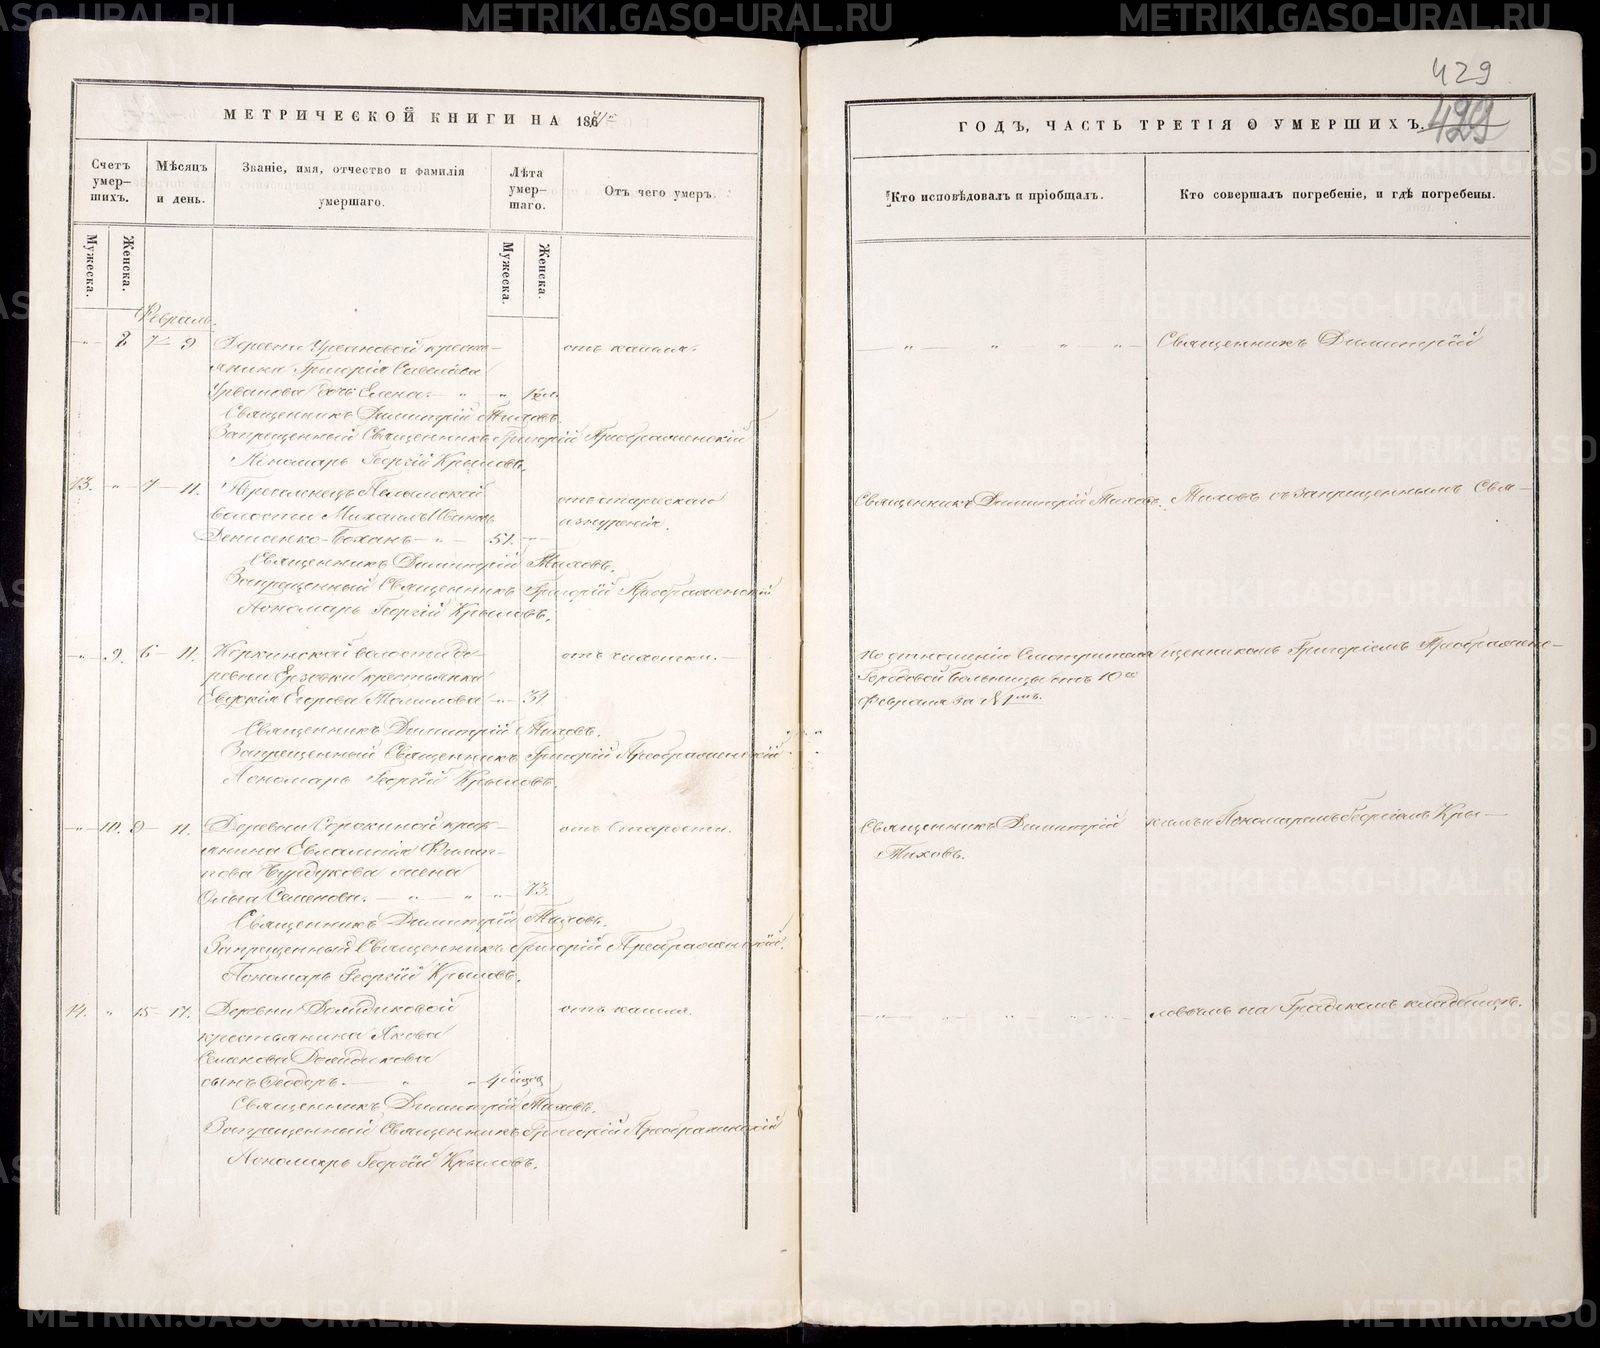 429
429
МЕТРИЧЕСКОЙ КНИГИ НА 186
ГОДЪ, ЧАСТЬ ТРЕТІЯ О УМЕРШИХЪ.
Счетъ умер-шихъ.
Мѣсяцъ и день.
Званіе, имя, отчество и фамилія умершаго.
Лѣта умер-шаго.
Отъ чего умеръ.
Кто исповѣдовалъ и пріобщалъ.
Кто совершалъ погребеніе, и гдѣ погребены.
Мужеска.
Женска.
Мужеска.
Женска.
Февраль.
8 7 9 Деревни Урвановой кресть-
янина Григорія Савелиева
Урванова дочь Елена
отъ кашля.
Священникъ Димитрій
Священникъ Димитрій Тиховъ.
Запрещенный Священникъ Григорій Преображенскій
Пономарь Георгій Крыловъ.
13. 7 11. Переселенецъ Пелымской
волости Михаилъ Ивановъ
Денисенко-Боханъ 51.
отъ старческаго
изнуренія.
Священникъ Димитрій Тиховъ.
Тиховъ съ запрещеннымъ Свя-
Священникъ Димитрій Тиховъ.
Запрещенный Священникъ Григорій Преображенскій
Пономарь Георгій Крыловъ.
9. 6 11. Коркинской волости де-
ревни Ерзовки крестьянка
Евдокія Егорова 34
отъ чахотки.
по отношенію Смотрителя
Городовой больницы отъ 10го
Февраля за №
щенникомъ Григоріемъ Преображенс-
Священникъ Димитрій Тиховъ.
Запрещенный Священникъ Григорій Преображенскій
Пономарь Георгій Крыловъ.
10. 9 11. Деревни Сорокиной крест-
янина Евлампія Филип-
пова Бурдукова жена
Ольга Семенова. 73.
отъ старости.
Священникъ Димитрій
Тиховъ.
кимъ и Пономаремъ Георгіемъ Кры-
Священникъ Димитрій Тиховъ.
Запрещенный Священникъ Григорій Преображенскій.
Пономарь Георгій Крыловъ.
14. 15 17. Деревни
крестьянина Якова
Семенова
сынъ Феодоръ. 4
отъ кашля.
ловымъ на Градскомъ кладбищѣ.
Священникъ Димитрій Тиховъ.
Запрещенный Священникъ Григорій Преображенскій
Пономарь Георгій Крыловъ.
METRIKI.GASO-URAL.RU